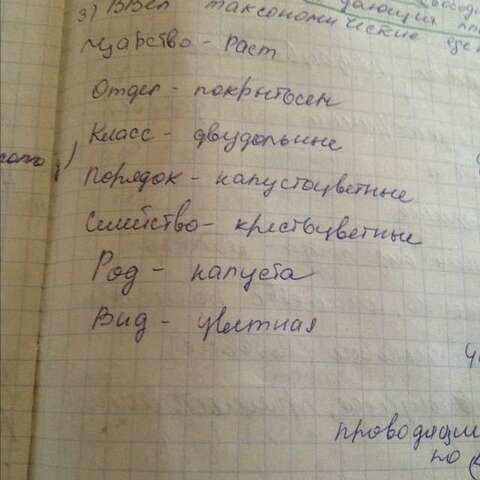 3) Ввел таксономические
дающих
Царство - Раст
Отдел - покрытосем
Класс - двудольные
Порядок - капустоцветные
Семейство - крестоцветные
Род - капуста
Вид - цветная
проводящие
по